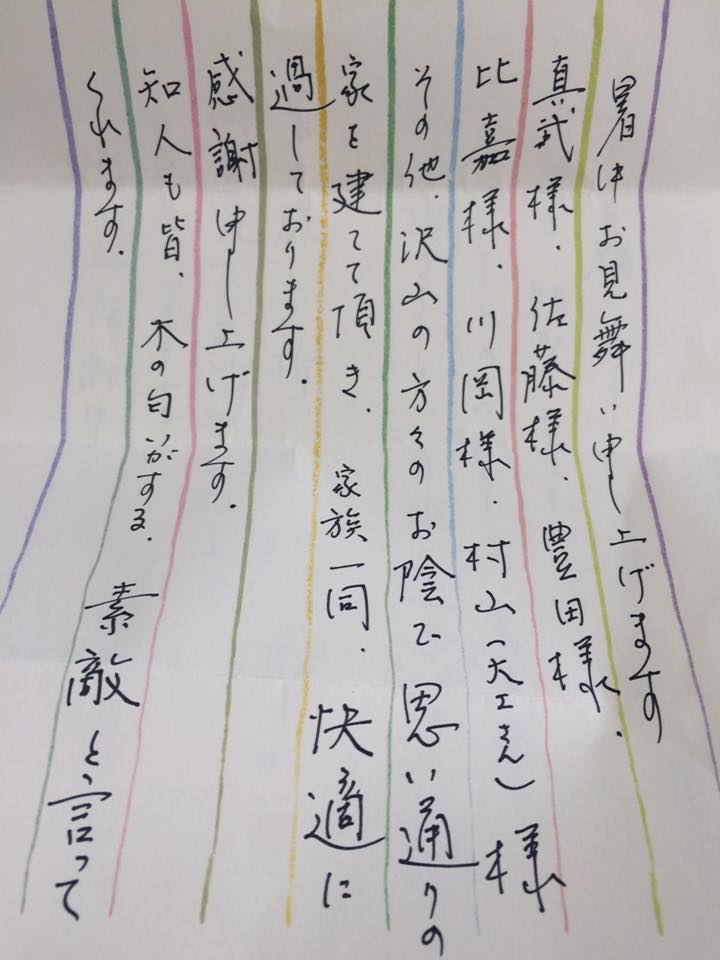 暑中お見舞い申し上げます
真武様、佐藤様、豊田様、
比嘉様、川岡様、村山(大工さん)様
その他、沢山の方々のお陰で思い通りの
家を建てて頂き、家族一同、快適に
過しております。
感謝申し上げます。
知人も皆、木の匂いがする、素敵と、言って
くれます。